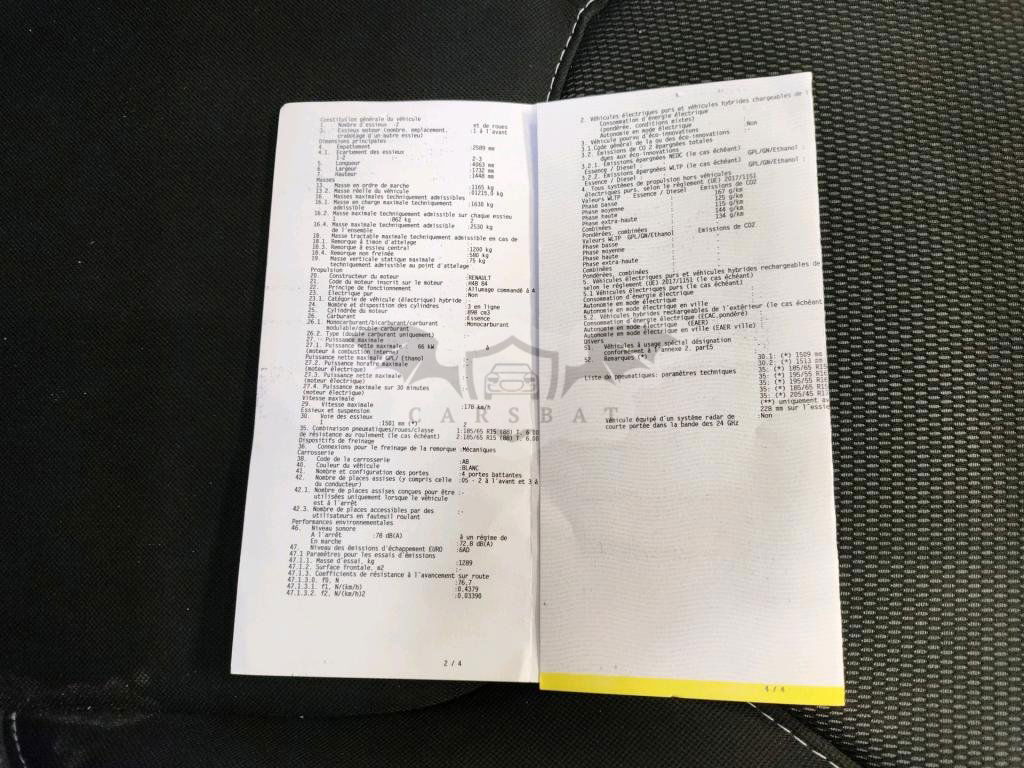 Constitution générale du véhicule
1. Nombre d'essieux :2 et de roues
3. Essieux moteur (nombre, emplacement, :1 à l'avant
crabotage d'un autre essieu)
Dimensions principales
4. Empattement :2589 mm
4.1. Ecartement des essieux
1-2 2-3
5. Longueur :4063 mm
6. Largeur :1732 mm
7. Hauteur :1448 mm
Masses
13. Masse en ordre de marche :1165 kg
13.2. Masse réelle du véhicule :01215,0 kg
16. Masses maximales techniquement admissibles
16.1. Masse en charge maximale techniquement :1630 kg
admissible
16.2. Masse maximale techniquement admissible sur chaque essieu
1 :862 kg 2
16.4. Masse maximale techniquement admissible :2530 kg
de l'ensemble
18. Masse tractable maximale techniquement admissible en cas de
18.1. Remorque à timon d'attelage
18.3. Remorque à essieu central :1200 kg
18.4. Remorque non freinée :580 kg
19. Masse verticale statique maximale :75 kg
techniquement admissible au point d'attelage
Propulsion
20. Constructeur du moteur :RENAULT
21. Code du moteur inscrit sur le moteur :H4B B4
22. Principe de fonctionnement :Allumage commandé à 4
23. Electrique pur :Non
23.1. Catégorie de véhicule (électrique) hybride :-
24. Nombre et disposition des cylindres :3 en ligne
25. Cylindrée du moteur :898 cm3
26. Carburant :Essence
26.1. Monocarburant/bicarburant/carburant :Monocarburant
modulable/double carburant
26.2. Type (double carburant uniquement) :-
27. Puissance maximale
27.1. Puissance nette maximale : 66 kW à
(moteur à combustion interne)
Puissance nette maximale GPL/ Ethanol :
27.2. Puissance horaire maximale :
(moteur électrique)
27.3. Puissance nette maximale :
(moteur électrique)
27.4. Puissance maximale sur 30 minutes :
(moteur électrique)
Vitesse maximale
29. Vitesse maximale :178 km/h
Essieux et suspension
30. Voie des essieux
:1501 mm (*) 2
35. Combinaison pneumatiques/roues/classe 1:185/65 R15 (88) T, 6.00
de résistance au roulement (le cas échéant) 2:185/65 R15 (88) T, 6.00
Dispositifs de freinage
36. Connexions pour le freinage de la remorque :Mécaniques
Carrosserie
38. Code de la carrosserie :AB
40. Couleur du véhicule :BLANC
41. Nombre et configuration des portes :4 portes battantes
42. Nombre de places assises (y compris celle :05 - 2 à l'avant et 3 à
du conducteur)
42.1. Nombre de places assises conçues pour être :-
utilisées uniquement lorsque le véhicule
est à l'arrêt
42.3. Nombre de places accessibles par des :-
utilisateurs en fauteuil roulant
Performances environnementales
46. Niveau sonore
A l'arrêt :78 dB(A) à un régime de
En marche :72.0 dB(A)
47. Niveau des émissions d'échappement EURO :6AD
47.1 Paramètres pour les essais d'émissions
47.1.1. Masse d'essai, kg :1289
47.1.2. Surface frontale, m2 :-
47.1.3. Coefficients de résistance à l'avancement sur route
47.1.3.0. f0, N :76,7
47.1.3.1. f1, N/(km/h) :0.4379
47.1.3.2. f2, N/(km/h)2 :0.03390
2 / 4
2. Véhicules électriques purs et véhicules hybrides chargeables de l
Consommation d'énergie électrique :
(pondérée, conditions mixtes)
Autonomie en mode électrique :
3. Véhicule pourvu d'éco-innovations :Non
3.1. Code général de la ou des éco-innovations :-
3.2. Emissions de CO 2 épargnées totales
dues aux éco-innovations
3.2.1. Emissions épargnées NEDC (le cas échéant)
Essence / Diesel : GPL/GN/Ethanol :
3.2.2. Emissions épargnées WLTP (le cas échéant)
Essence / Diesel : GPL/GN/Ethanol :
4. Tous systèmes de propulsion hors véhicules
électriques purs, selon le règlement (UE) 2017/1151
Valeurs WLTP Essence / Diesel Emissions de CO2
Phase basse : 167 g/km
Phase moyenne : 125 g/km
Phase haute : 115 g/km
Phase extra-haute : 144 g/km
Combinées : 134 g/km
Pondérées, combinées :
Valeurs WLTP GPL/GN/Ethanol Emissions de CO2
Phase basse :
Phase moyenne :
Phase haute :
Phase extra-haute :
Combinées :
Pondérées, combinées :
5. Véhicules électriques purs et véhicules hybrides rechargeables de
selon le règlement (UE) 2017/1151 (le cas échéant)
5.1 Véhicules électriques purs (le cas échéant)
Consommation d'énergie électrique :
Autonomie en mode électrique :
Autonomie en mode électrique en ville :
5.2. Véhicules hybrides rechargeables de l'extérieur (le cas échéant
Consommation d'énergie électrique (ECAC,pondéré) :
Autonomie en mode électrique (EAER) :
Autonomie en mode électrique en ville (EAER ville) :
Divers
51. Véhicules à usage spécial désignation :
conformément à l'annexe 2, part5
52. Remarques (*)
30.1: (*) 1509 mm
30.2: (*) 1513 mm
Liste de pneumatiques: paramètres techniques
35: (*) 185/65 R15
35: (*) 195/55 R16
35: (*) 195/55 R16
35: (*) 185/65 R15
35: (*) 205/45 R1
(**) uniquement av
228 mm sur l'essie
Véhicule équipé d'un système radar de :Non
courte portée dans la bande des 24 GHz
4 / 4
CARSBAT